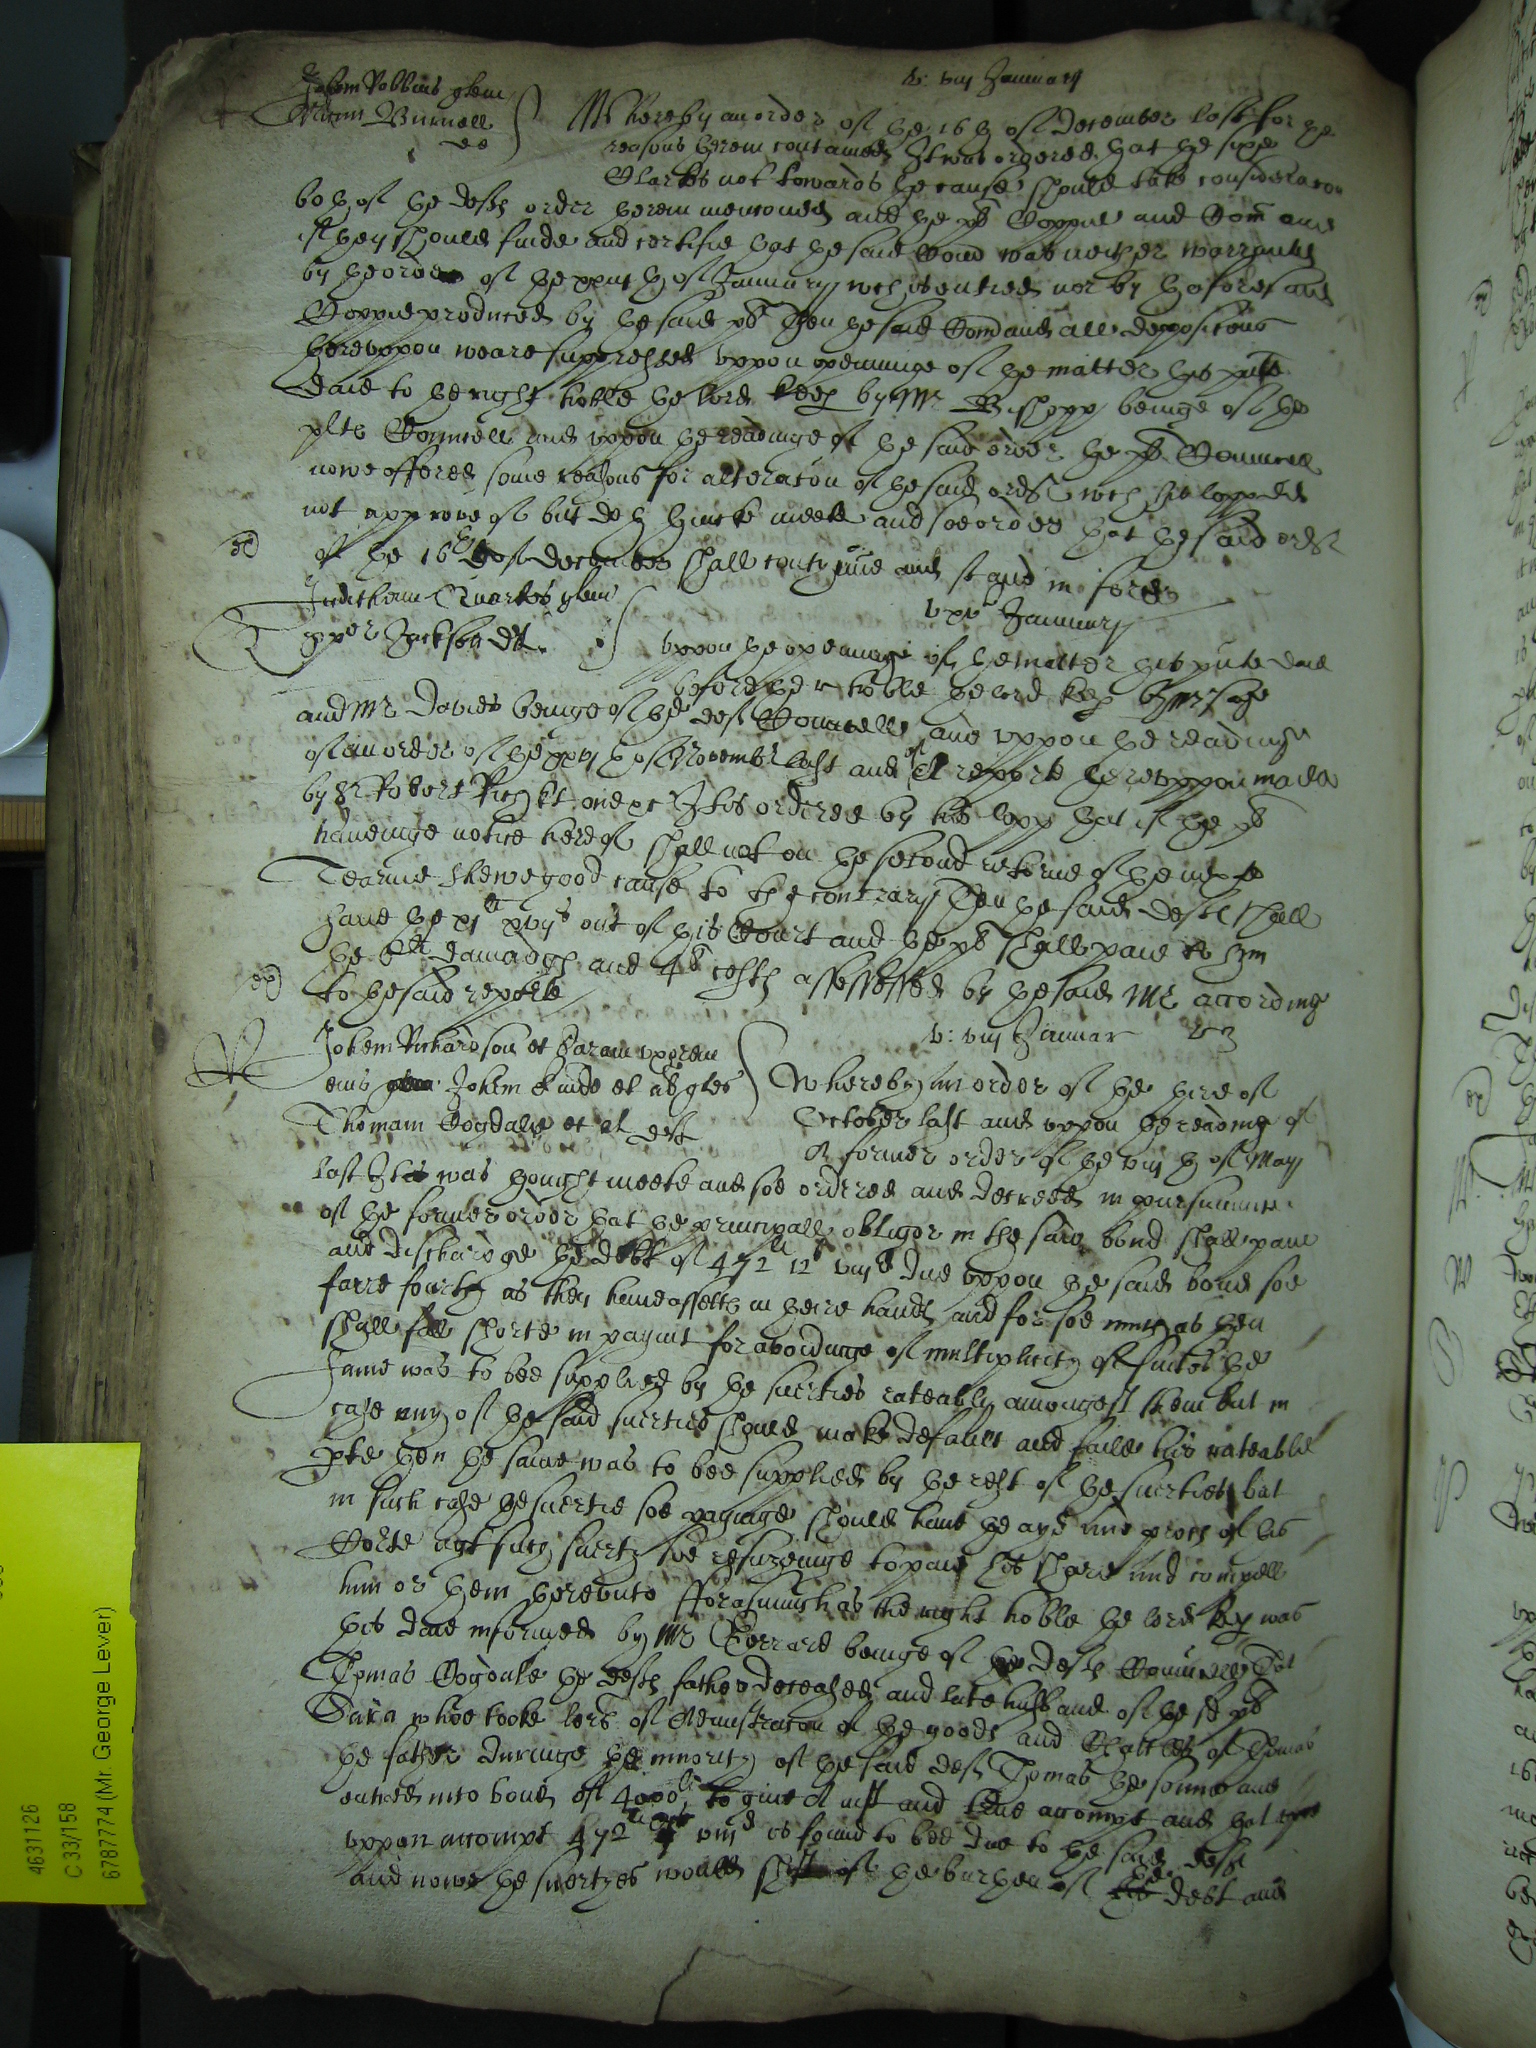 v: viij January
Johem Robbins quer
Burnell
de
Whereby an order of the 16th of December last for the
reasons therein contained It was ordered that the sixe
Clarkes not towards the cause should take consideracon
both of the deftes order therein menconed and the pts Coppie and Com and
if they should finde and certifie that the said Comd was neither warranted
by the order of the xxiiijth of January wch is entred nor by thaforesaid
Coppie produced by the said pt Then the said Comd and all deposicons
therevppon weare suppressed vppon openinge of the matter this pnte
daie to the right hoble the lord Keep by Mr Bishopp beinge of the
plts Counsell and vppon the readinge of the said order the pts Counsell
nowe offered some reasons for alteracon of the said order wch his lopp did
not approve of but doth thincke meete and soe order that the said order
of the 16th of December shall contynue and stand in force
Juditham Quarles quer
xper Jackson deft
xxv January
vppon the openinge of the matter this pnte daie
before the r hoble the lord Kep by Mr Sage
and Mr Davies beinge of the deftes Counsell and vppon the readinge
of an order of the xxvjth of Novembr last and of a reporte therevppon made
by Sr Robert Rich kt one &c It is ordered by his lopp that if the pt
haveinge notice hereof shall not on the second retorne of the nexte
Tearme shewe good cause to the contrary Then the said deft shall
have the xjli xvjs out of this Court and the pt shall paie to him
the damadges and 4s costes assessed by the said Mr according
to the said reporte
v: viij Januar
Johem Richardson et Saram vxorem
eius Johem Kinde et al quer
Thomam Cogdale et al deft
Whereby an order of the third of
October last and vppon the reading of
a former order of the viijth of May
last It was thought meete and soe ordered and decreed in pursuance
of the former order that the principall obligor in the said bond shall paie
and discharge the debt of 472li 12s viijd due vppon the said bond soe
farre fourth as they have assettes in theire handes and for soe much as then
shall fall shorte in paymt for avoidinge of multiplicity of suites the
same was to bee supplied by the suerties rateably amongest them but in
case any of the said suerties should make default and faile his rateable
pte then the same was to bee supplied by the rest of the suerties but
in such case the suertie soe payinge should have the ayd and proces of this
Corte agt such suerty soe refuseinge to paie his share and compell
him or them therevnto fforasmuch as the right hoble the lord Kep was
this daie informed by Mr Gerrard beinge of the deftes Counsell That
Thomas Cogdale the deftes father deceased and late husband of the sd pt
Sara whoe tooke lres of Administracon of the goodes and Chattles of Thomas
the father duringe the minority of the said deft Thomas the sonne and
entred into bond of 4000li to give a iust and true accompt and that
vppon accompt 472li viijd is found to bee due to the said deft
and nowe the suertyes would shift of the burthen of the debt and
4631126
C 33/158
6787774 (Mr. George Lever)